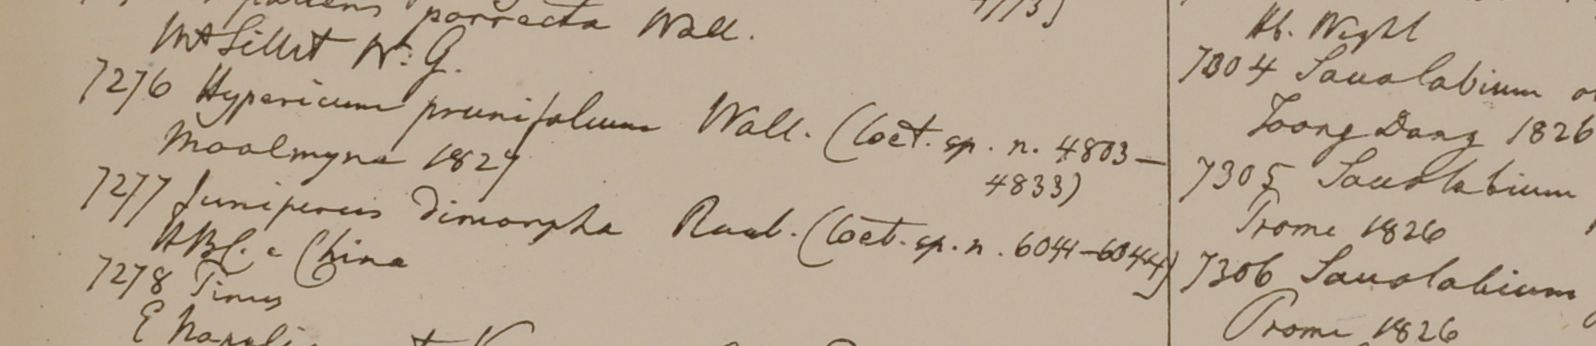 porrecta Wall.
Mt Sillet W. G.
7276 Hypericum prunifolium Wall. (Coct. sp. n. 4803—
4833)
Moalmyne 1827
7277 Juniperus dimorpha Roxb. (Coct. sp. n. 6041-6044)
HBC. e China
7278 Pinus
E Napuli
Hb. Wight
7304 Saccolabium
Toong Dong 1826
7305 Saccolabium
Prome 1826
7306 Saccolabium
Prome 1826